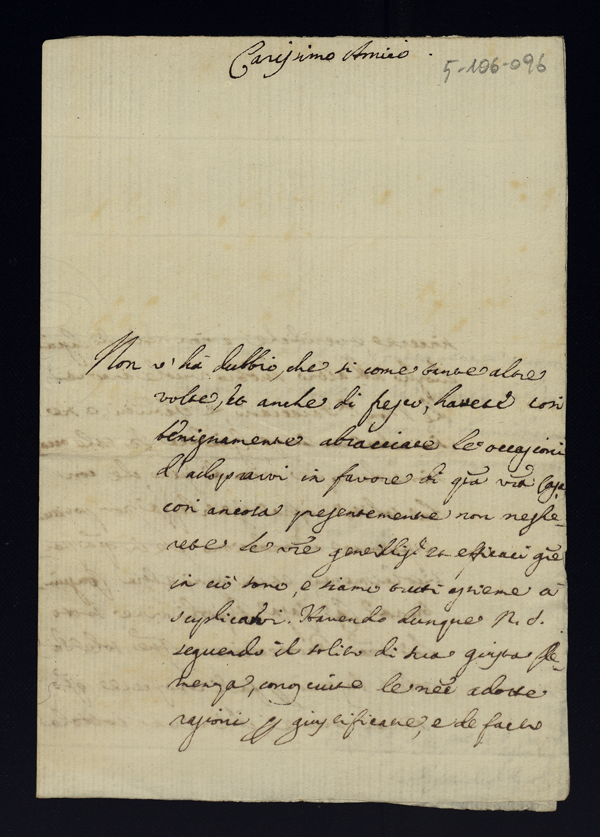 Carissimo Amico.
5-106-096
Non v'ha dubbio, che si come tante altre
volte, et anche di fresco, havete così
benignamente abbracciate le occasioni
d'adoprarvi in favore di qta vra Casa
così ancora presentemente non negle-
rete le vre et efficaci
in ciò sono, e siamo tutti assieme à
suplicarvi. Havendo dunque N. S.
seguendo il solito di sua giusta Cle-
menza, conosciute le adotte
ragioni giustificate, e de facto